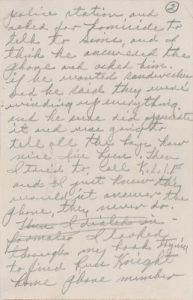 2
police station and
asked for homicide to
talk to Sims, and I
think he answered the
phone and asked him
if he wanted sandwiches
and he said they were
winding up everything
and he sure did appreciate
it and was going to
tell all the boys how
nice I'd been. Then
I tried to call K.L.I.F
and I just knew they
wouldn't answer the
phone, they never do.
Then I
I looked
through my book trying
to find Russ Knight
home phone number